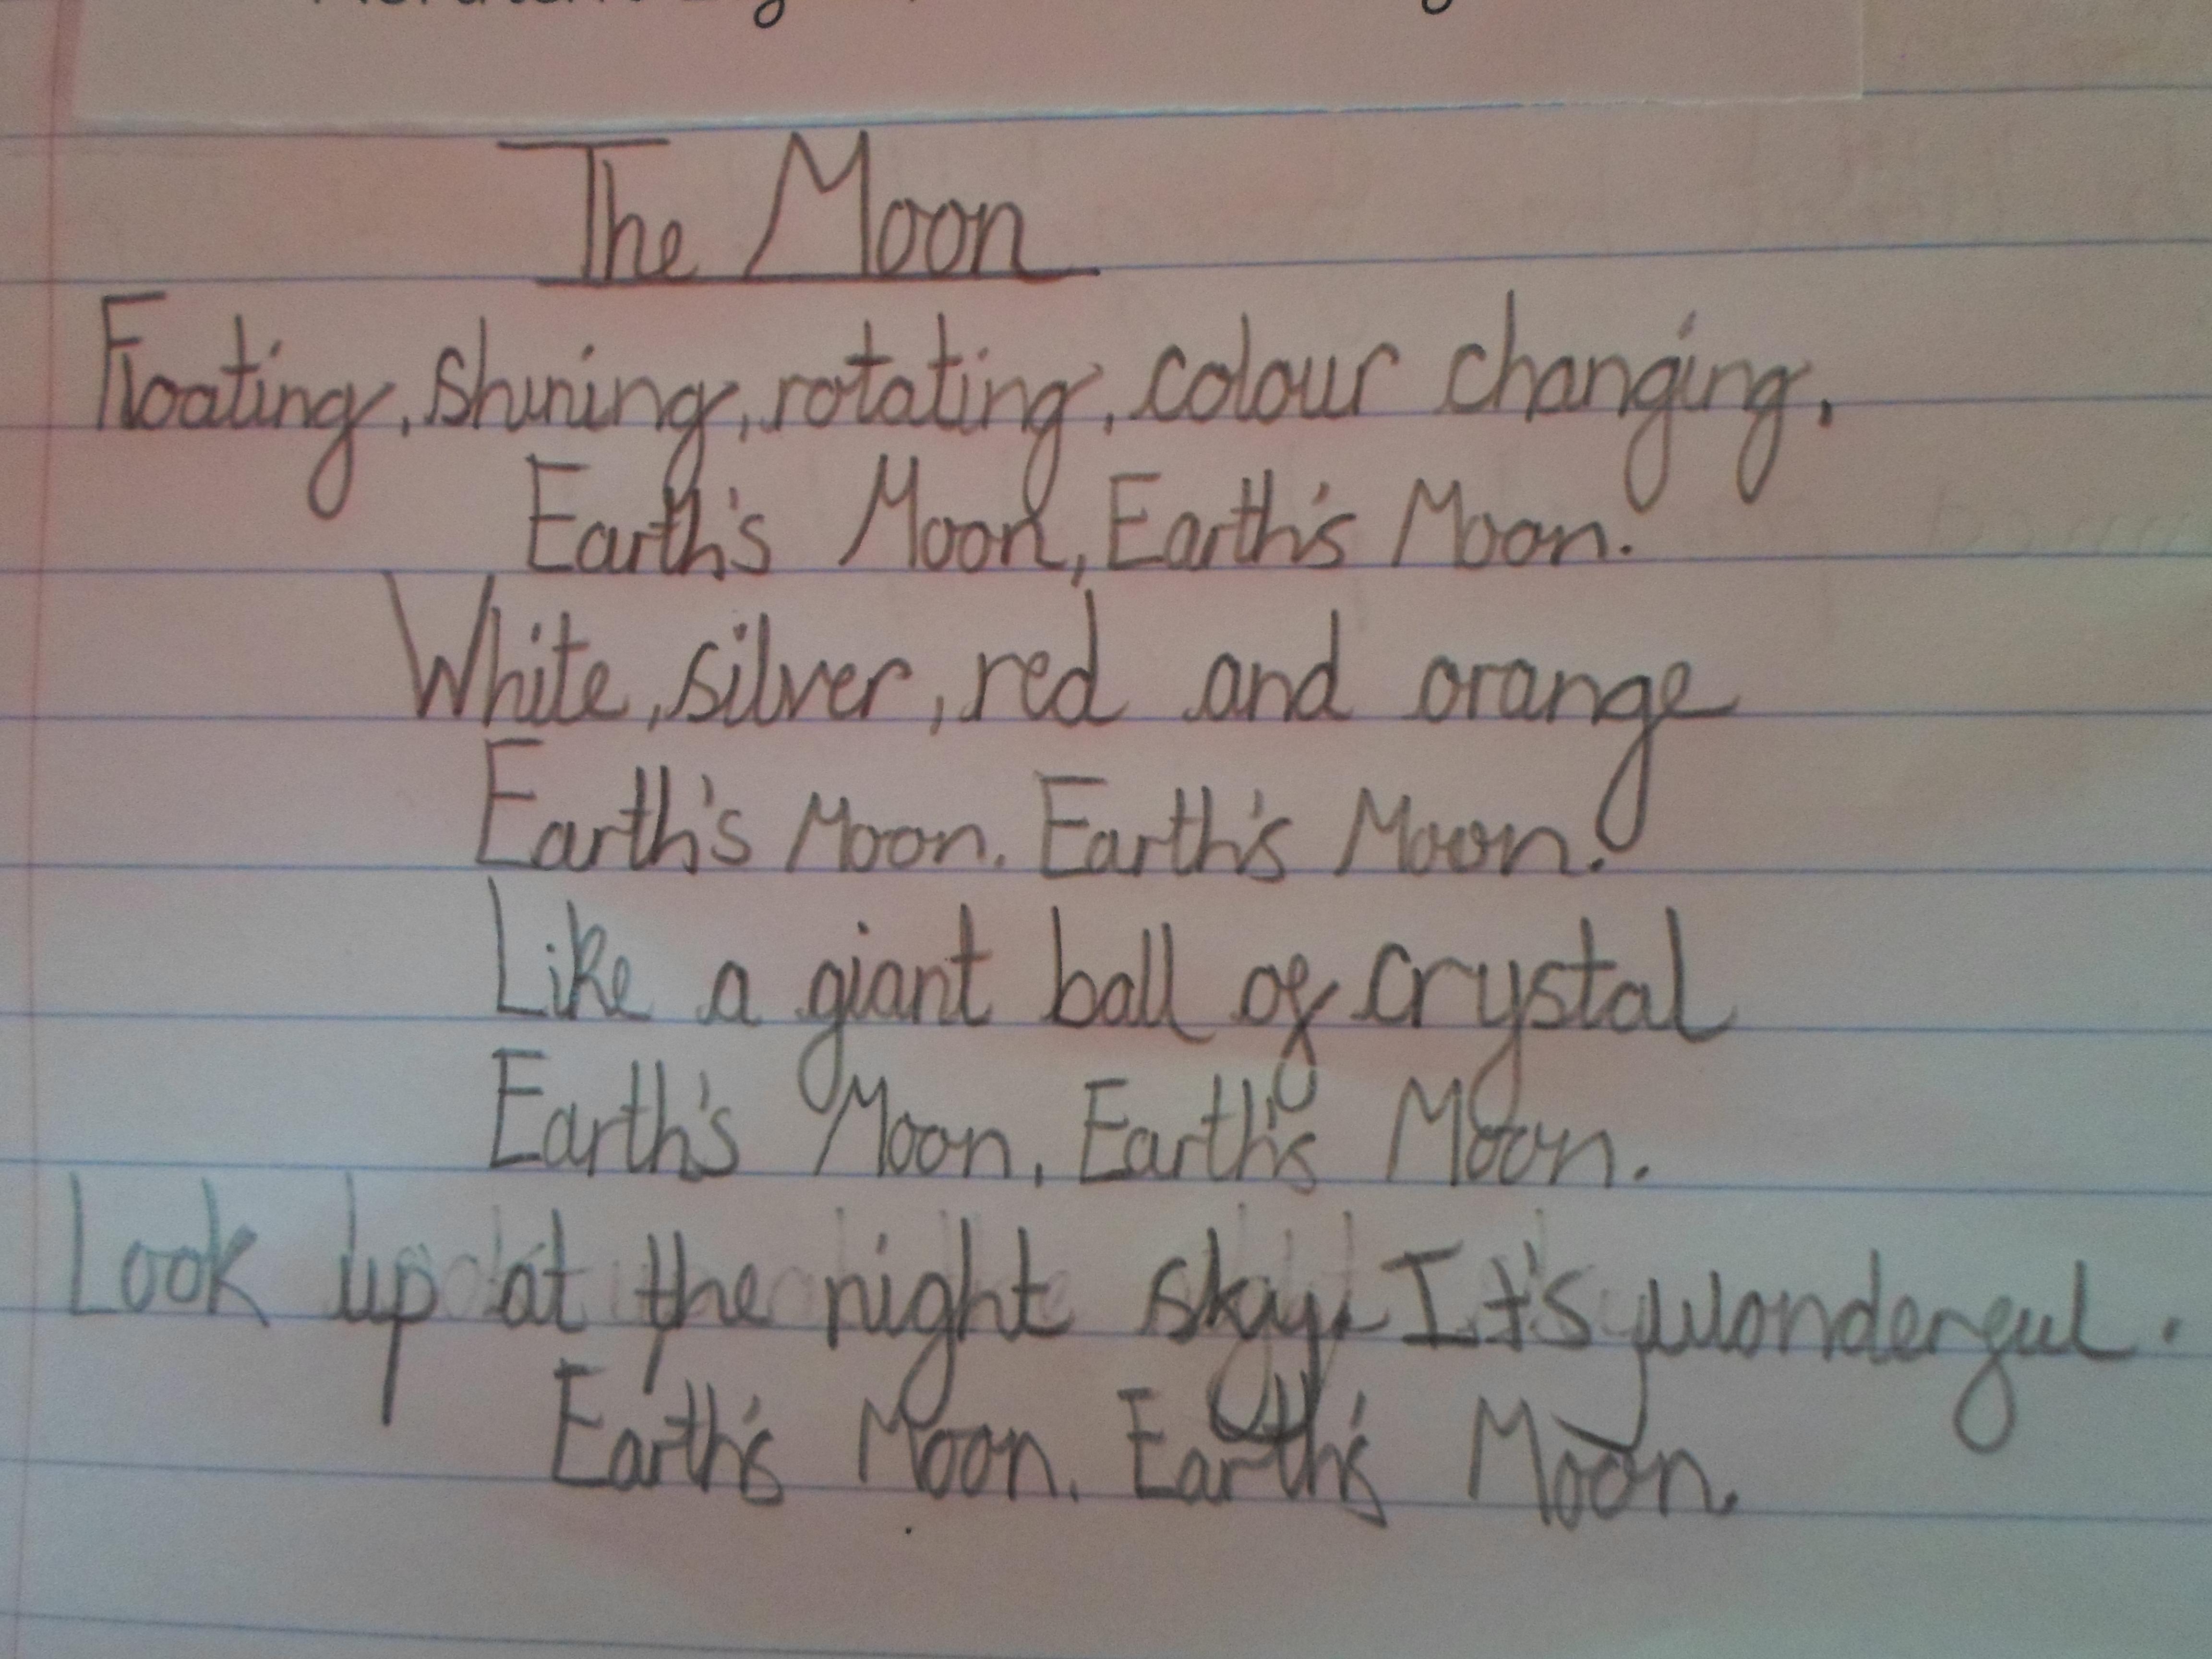 The Moon
Floating, shining, rotating, colour changing.
Earth's Moon, Earth's Moon.
White, silver, red and orange
Earth's Moon. Earth's Moon.
Like a giant ball of crystal
Earth's Moon, Earth's Moon.
Look up at the night sky. It's wonderful.
Earth's Moon. Earth's Moon.